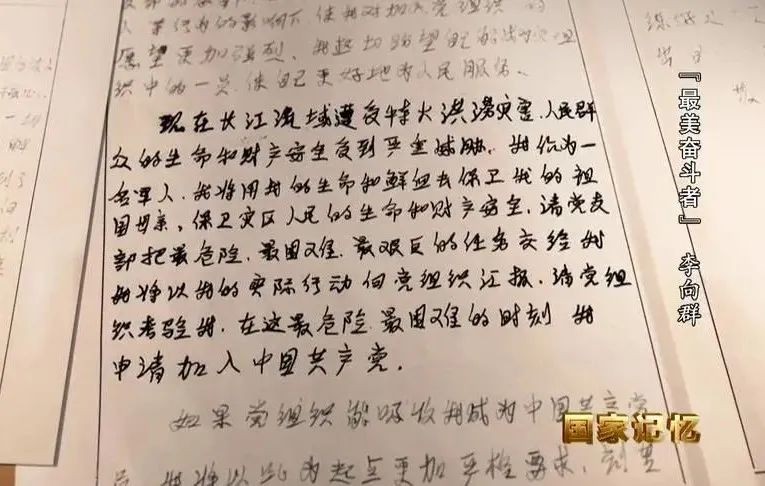 人 等行为的影响下,使我对加入党组织的
愿望更加强烈。我迫切盼望自己能成为党组
织中的一员,使自己更好地为人民服务。
现在长江流域遭受特大洪涝灾害,人民群
众的生命和财产安全受到严重威胁。我作为一
名军人,我将用我的生命和鲜血去保卫我的祖
国母亲。保卫灾区人民的生命和财产安全,请党支
部把最危险、最困难、最艰巨的任务交给我
我将以我的实际行动向党组织汇报,请党组
织考验我,在这最危险、最困难的时刻 我
申请加入中国共产党。
如果党组织能吸收我成为中国共产党
员 我将以此为起点更加严格要求,刻苦
『最美奋斗者』 李向群
国家记忆